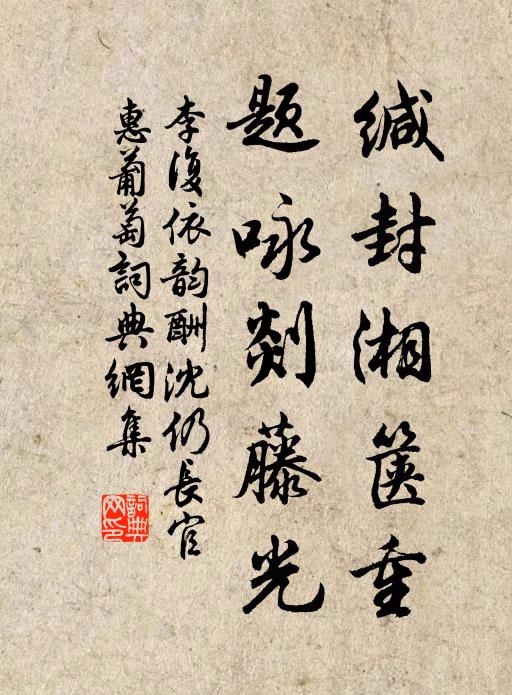 缄封湘箧重
题咏剡藤光
李復依韵酬沈仍長官
惠葡萄詞典網集
詞典网印